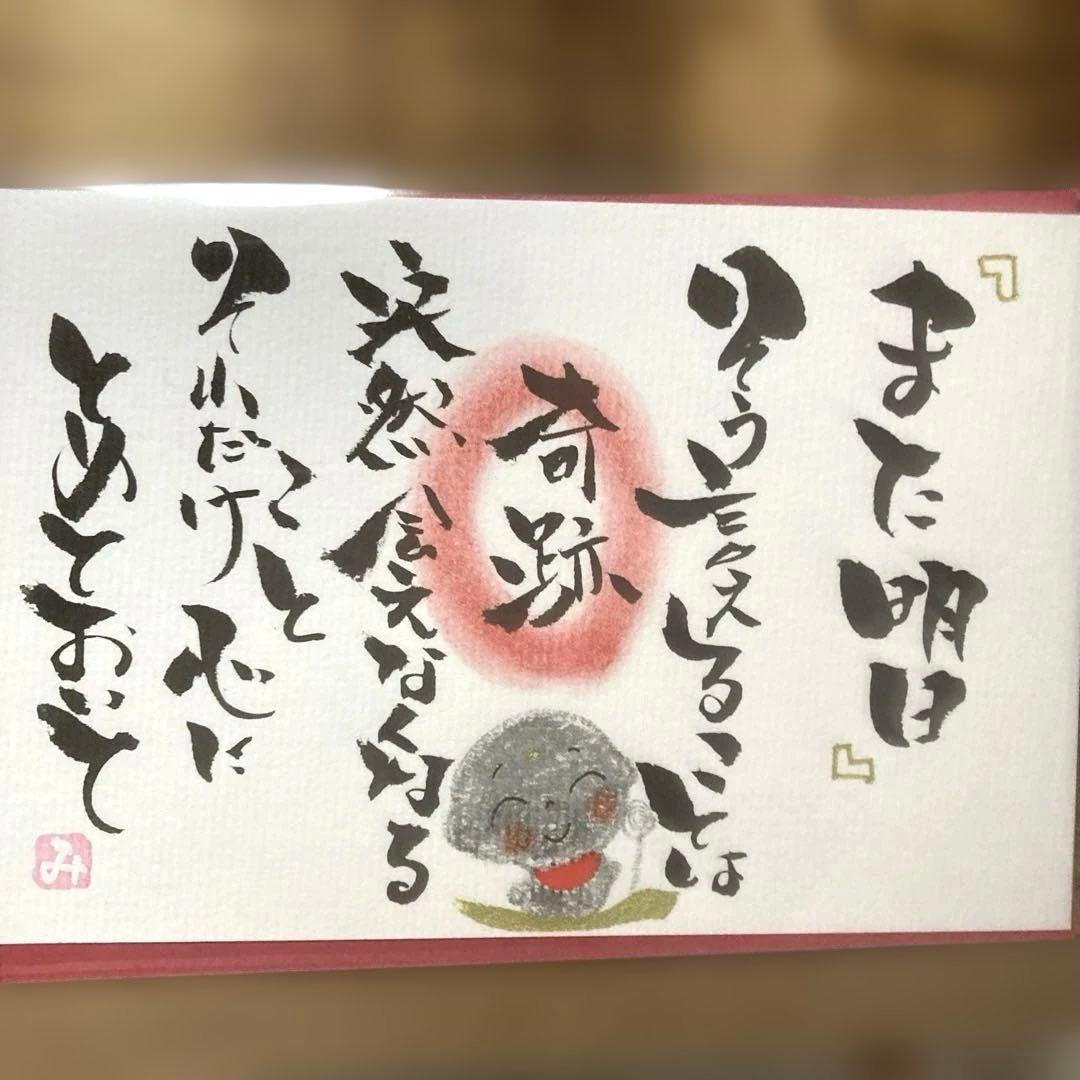 『また明日』
そう言えることは
奇跡
突然会えなくなる
こと
それだけ心に
とめておいて
み